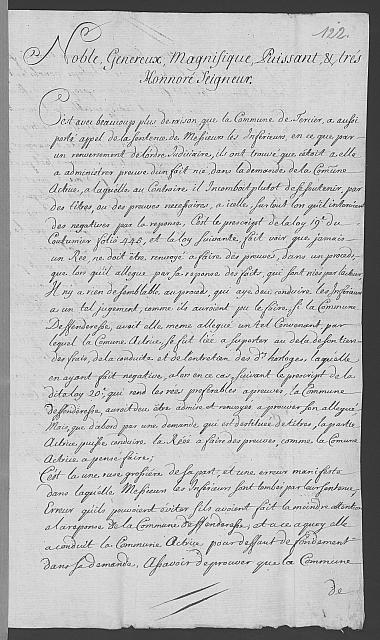 122.
Noble, Genereux, Magnifique, Puissant, & trés
Honnoré Seigneur.
C'est avec beaucoup plus de raison que la Commune de Tercier, a aussi
porté appel de la sentence de Messieurs les Inférieurs, en ce que par
un renversement de l'ordre Judiciaire, ils ont trouvé que c'étoit a elle
a administrer preuve d'un fait nié, dans la demande de la Comune
Actrice, a laquelle au Contraire, il Incomboit plutot de se soutenir, par
des titres, ou des preuves necessaires, a icelle, surtout lors qu'il intervient
des negatives par la reponse. C'est le prescript de la loy 19e. du
Coutumier folio 448, et la loy suivante, fait voir que jamais
un Rée, ne doit être, renvoyé a faire des preuves, dans un procés,
que lors qu'il allegue par sa reponse des faits, qui sont niés par l'acteur
Il n'y a rien de semblable au procés, qui aye deu conduire les Inférieurs
a un tel jugement, comme ils auroient pu le faire, si la Commune
Deffenderesse, avoit elle meme allegué un tel Convenant par
lequel la Comune Actrice, se fut liée a suporter au dela de son tiers
des frais, de la conduite et de l'entretien des Dts. horloges, laquelle
en ayant fait negative, alors en ce cas, suivant le prescript de la
ditte loy 20e, qui rend les rées preférables a preuves, la Commune
deffenderesse, auroit deu être admise et renvoyée a prouver son allegué
Mais, que d'abord par une demande, qui est destituée de titres, la partie
Actrice, puisse conduire la Réé a faire des preuves, comme la Comune
Actrice a pensé faire;
C'est la une ruse grossière de sa part, et une erreur manifeste
dans laquelle Messieurs les Inférieurs sont tombés par leur sentence,
Erreur qu'ils pouvoient éviter s'ils avoient fait la moindre attention
a la reponse de la Commune deffenderesse, et a ce a quoy elle
a conduit la Commune Actrice pour deffaut de fondement
dans sa demande, Assavoir de prouver que la Commune
de